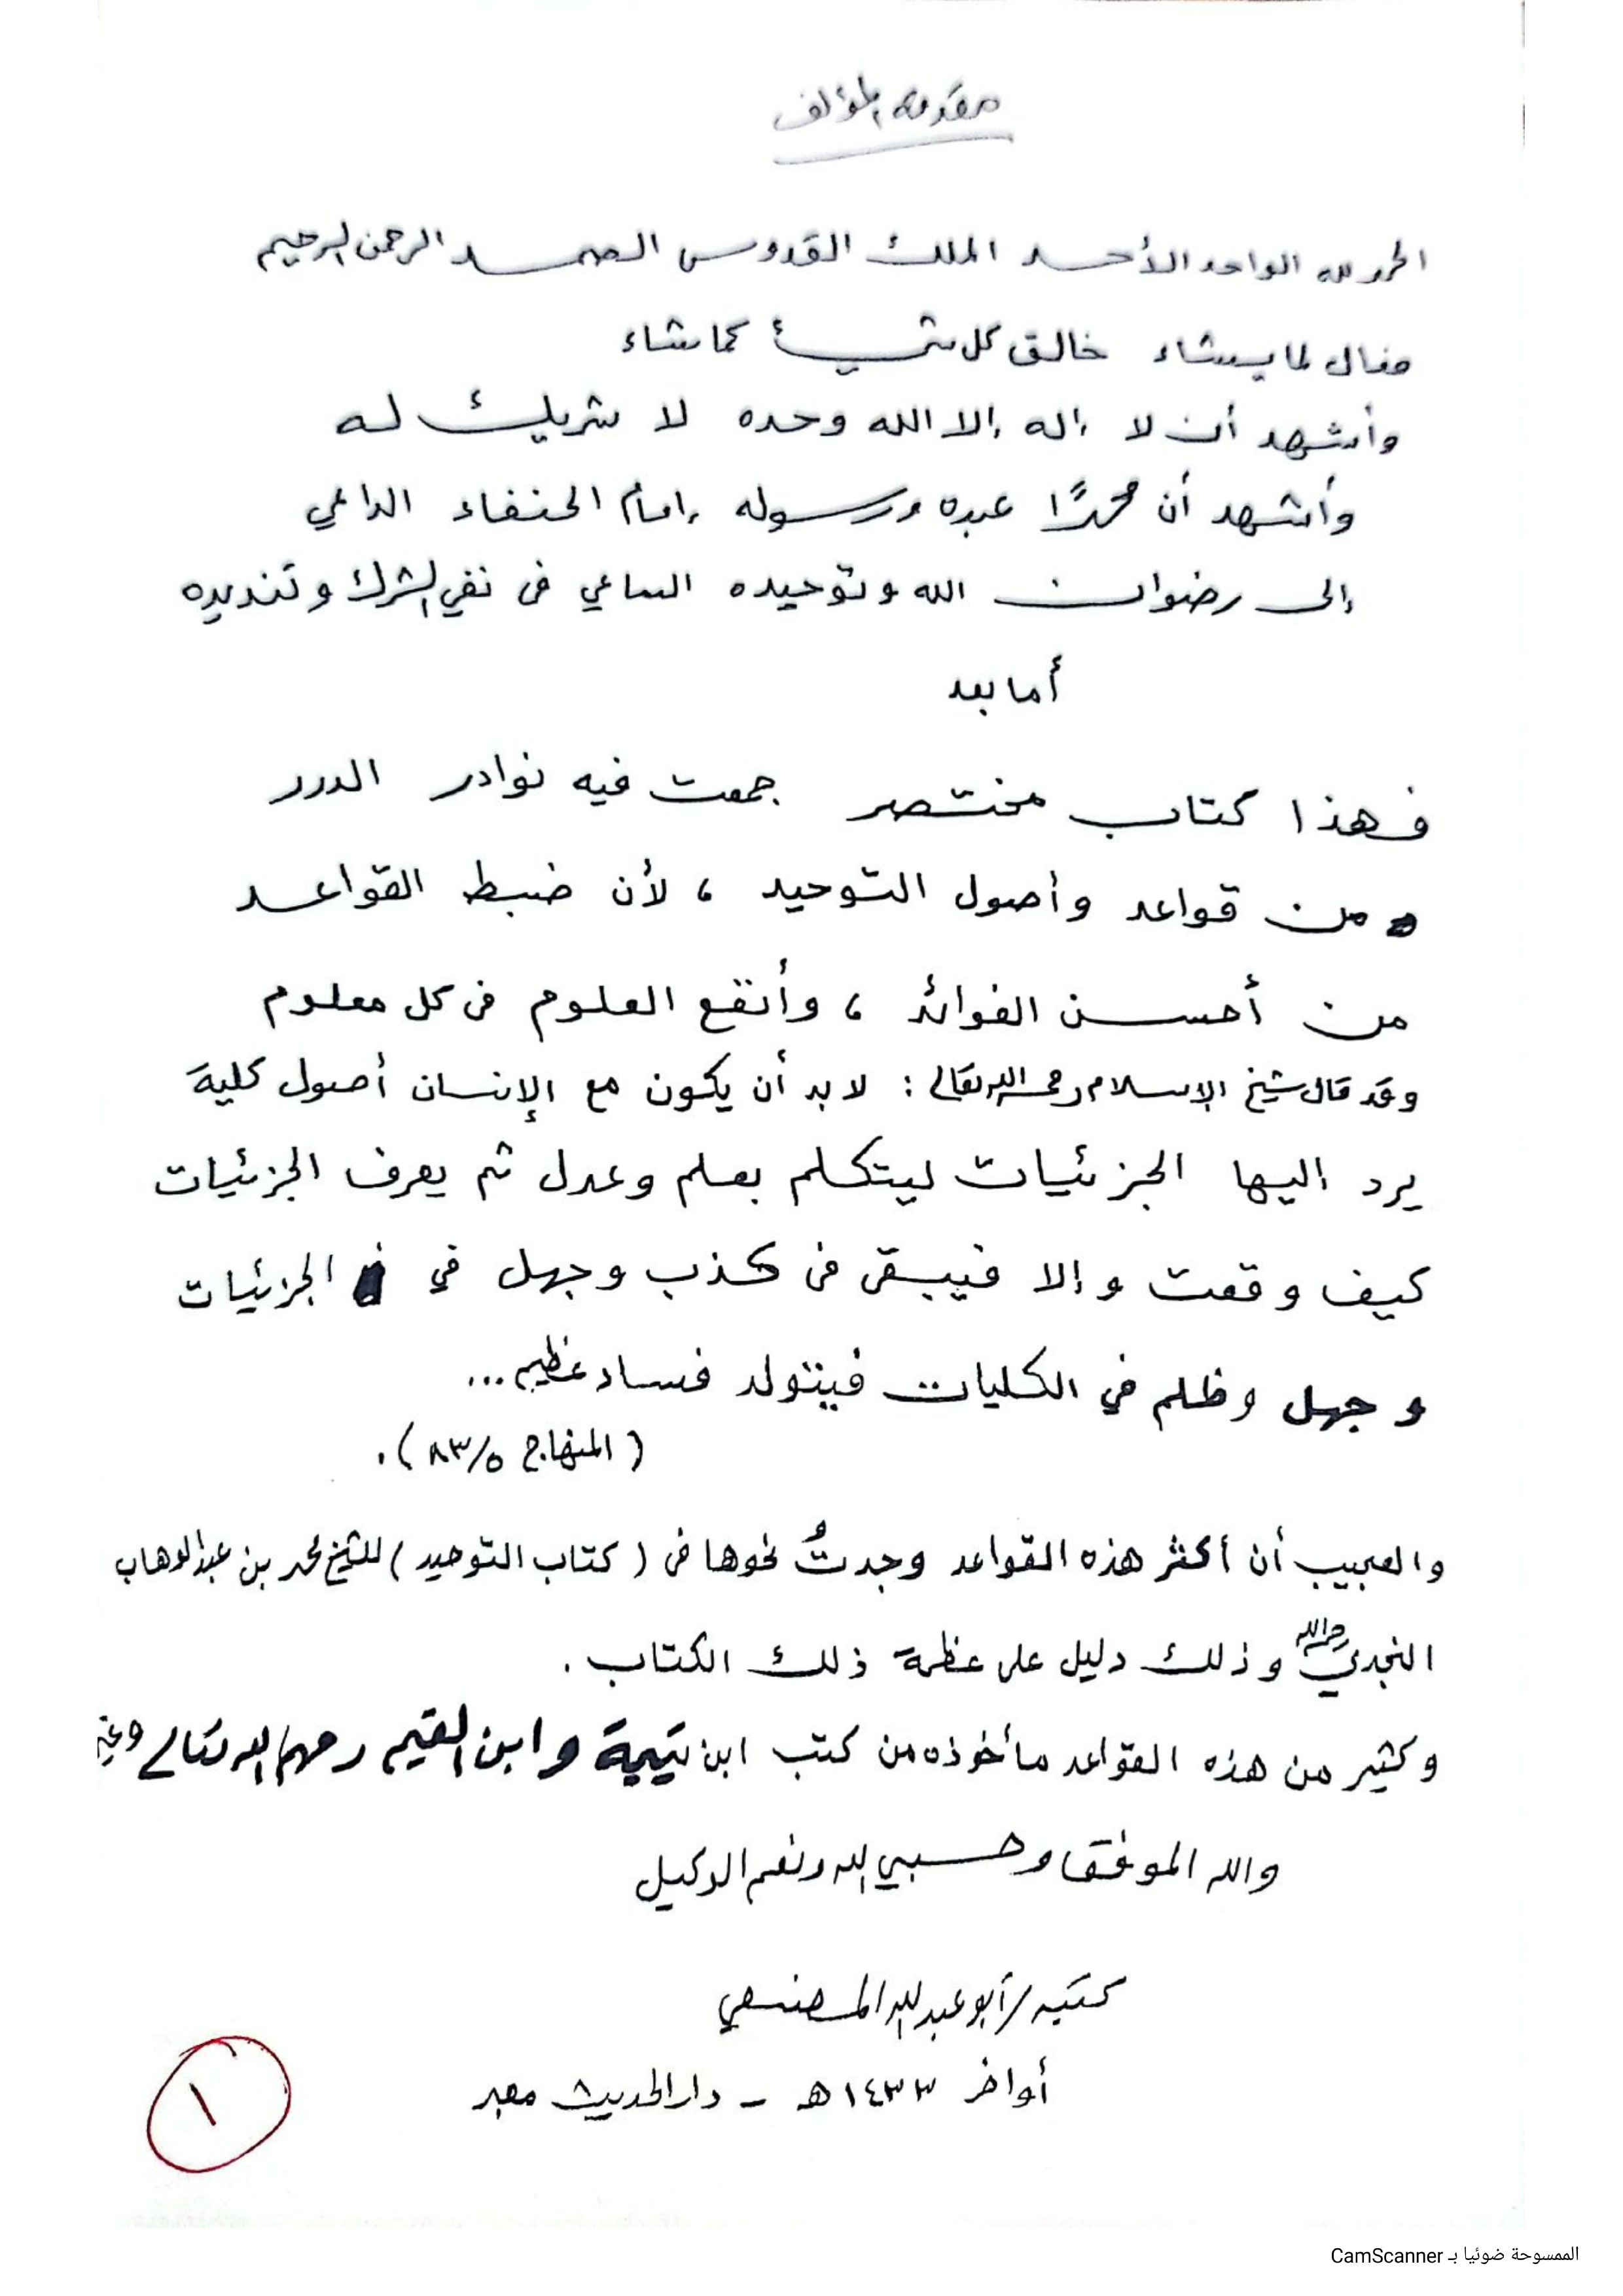 مقدمة المؤلف
الحمد لله الواحد الأحد الملك القدوس الصمد الرحمن الرحيم
فعال لما يشاء خالق كل شيء كما شاء
وأشهد أن لا إله إلا الله وحده لا شريك له
وأشهد أن محمدًا عبده ورسوله إمام الحنفاء الداعي
إلى رضوان الله وتوحيده الساعي في نفي الشرك وتنديده
أما بعد
فهذا كتاب مختصر جمعت فيه نوادر الدرر
من قواعد وأصول التوحيد ، لأن ضبط القواعد
من أحسن الفوائد ، وأنفع العلوم في كل معلوم
وقد قال شيخ الإسلام رحمه الله تعالى : لا بد أن يكون مع الإنسان أصول كلية
يرد اليها الجزئيات ليتكلم بعلم وعدل ثم يعرف الجزئيات
كيف وقعت وإلا فيبقى في كذب وجهل في الجزئيات
وجهل وظلم في الكليات فيتولد فساد عظيم ...
( المنهاج ٥/٨٣ ) .
والعجيب أن أكثر هذه القواعد وجدتُ نحوها في ( كتاب التوحيد ) للشيخ محمد بن عبدالوهاب
النجدي رحمه الله وذلك دليل على عظمة ذلك الكتاب .
وكثير من هذه القواعد مأخوذه من كتب ابن تيمية وابن القيم رحمهما الله تعالى
والله الموفق وحسبي الله ونعم الوكيل
كتبه / أبو عبد الله المصنعي
أواخر ١٤٣٣هـ - دار الحديث معبر
١
الممسوحة ضوئيا بـ CamScanner